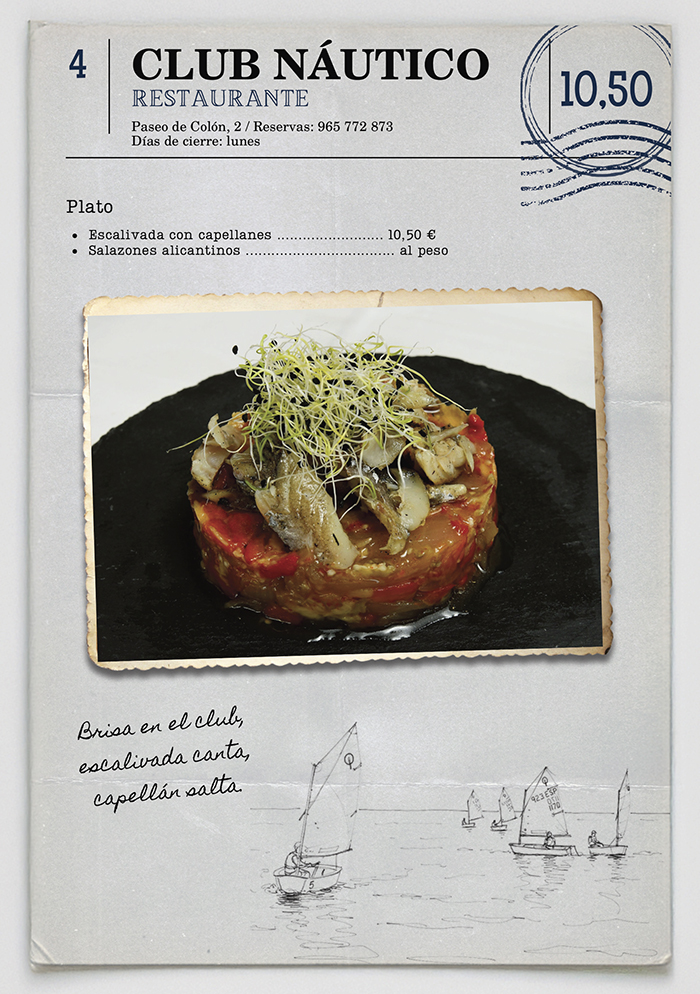 4
CLUB NÁUTICO
RESTAURANTE
Paseo de Colón, 2 / Reservas: 965 772 873
Días de cierre: lunes
10,50
Plato
• Escalivada con capellanes ......................... 10,50 €
• Salazones alicantinos ................................... al peso
Brisa en el club,
escalivada canta,
capellán salta.
5
923 ESP